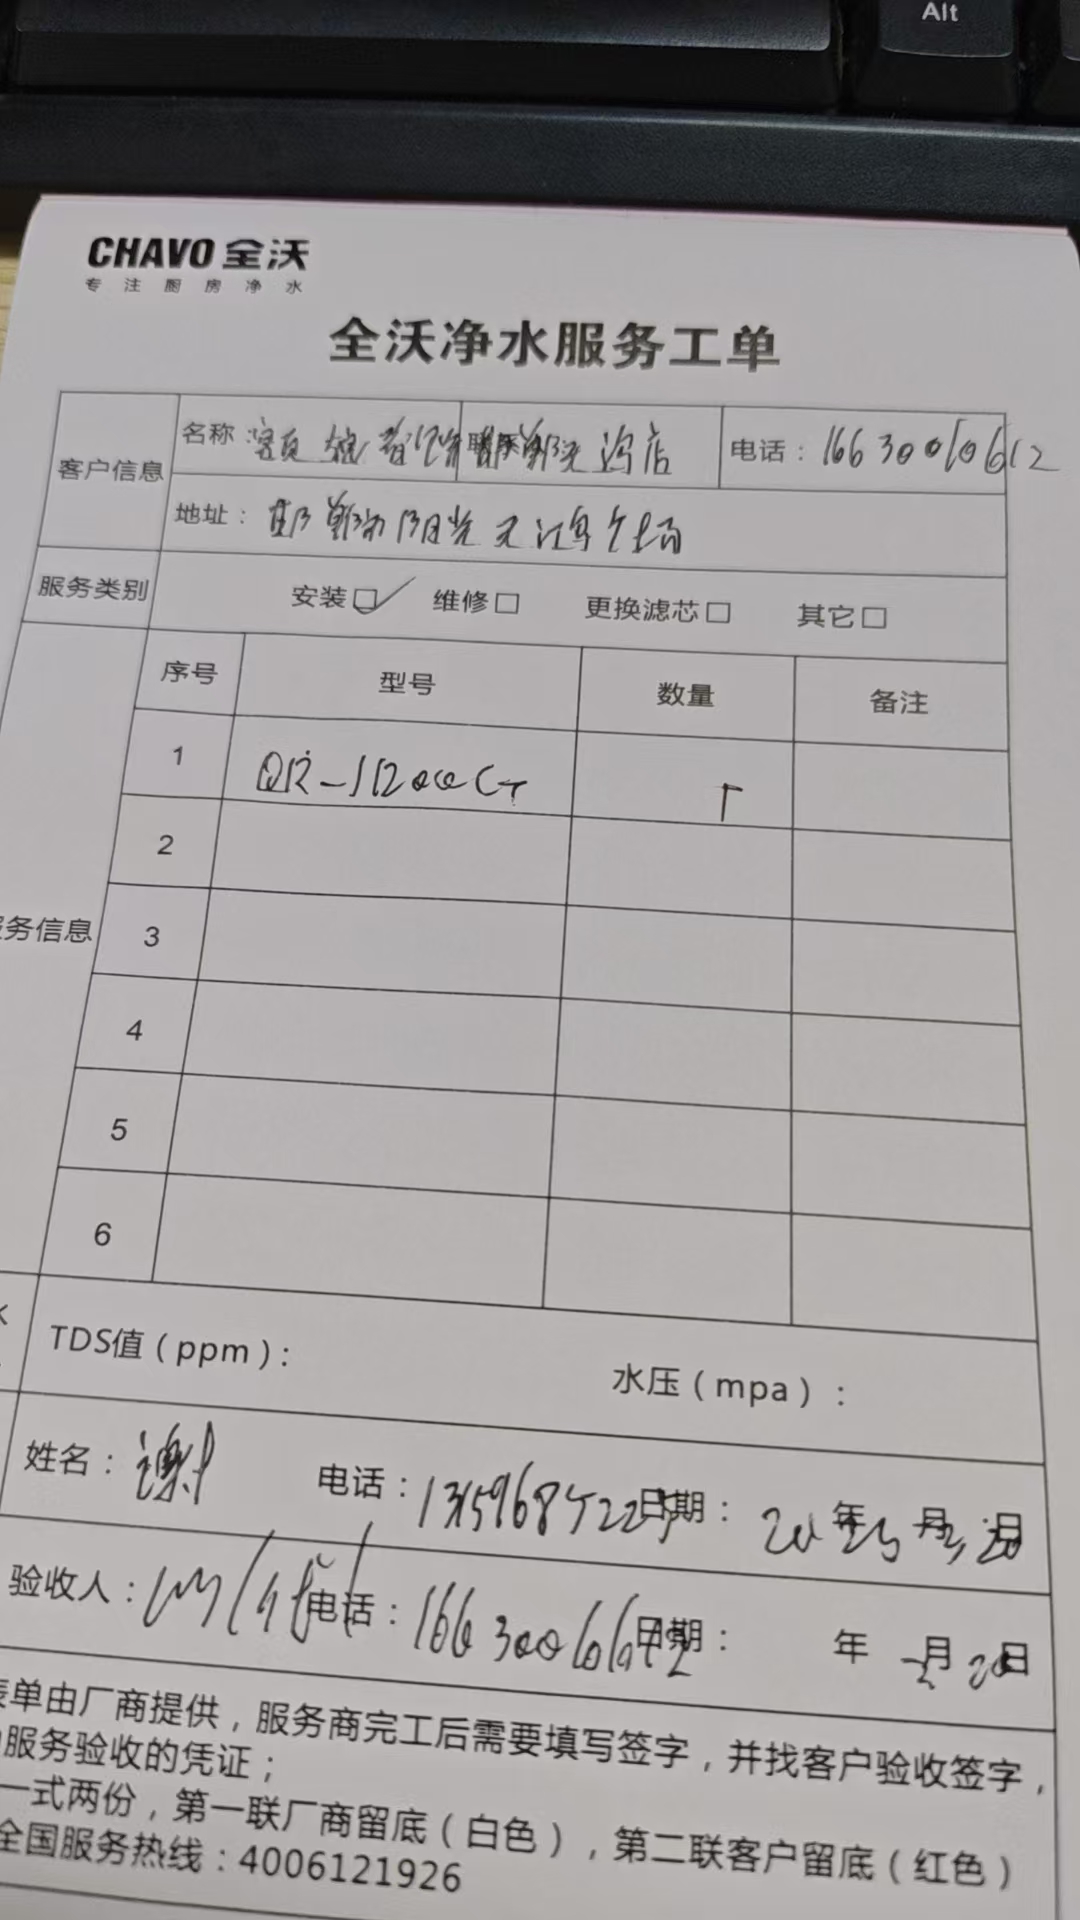 Alt
CHAVO 全沃
专注厨房净水
全沃净水服务工单
客户信息 名称: 酒店 电话: 16630010612
地址: 邯郸市阳光天鸿广场
服务类别 安装☑ 维修□ 更换滤芯□ 其它□
序号 型号 数量 备注
1 QR-J1200CT 1
2
务信息 3
4
5
6
TDS值(ppm): 水压(mpa):
姓名: 谢 电话: 日期: 年 月 日
验收人: 电话: 日期: 年 月 20日
表单由厂商提供,服务商完工后需要填写签字,并找客户验收签字,
服务验收的凭证;
一式两份,第一联厂商留底(白色),第二联客户留底(红色)
全国服务热线:4006121926